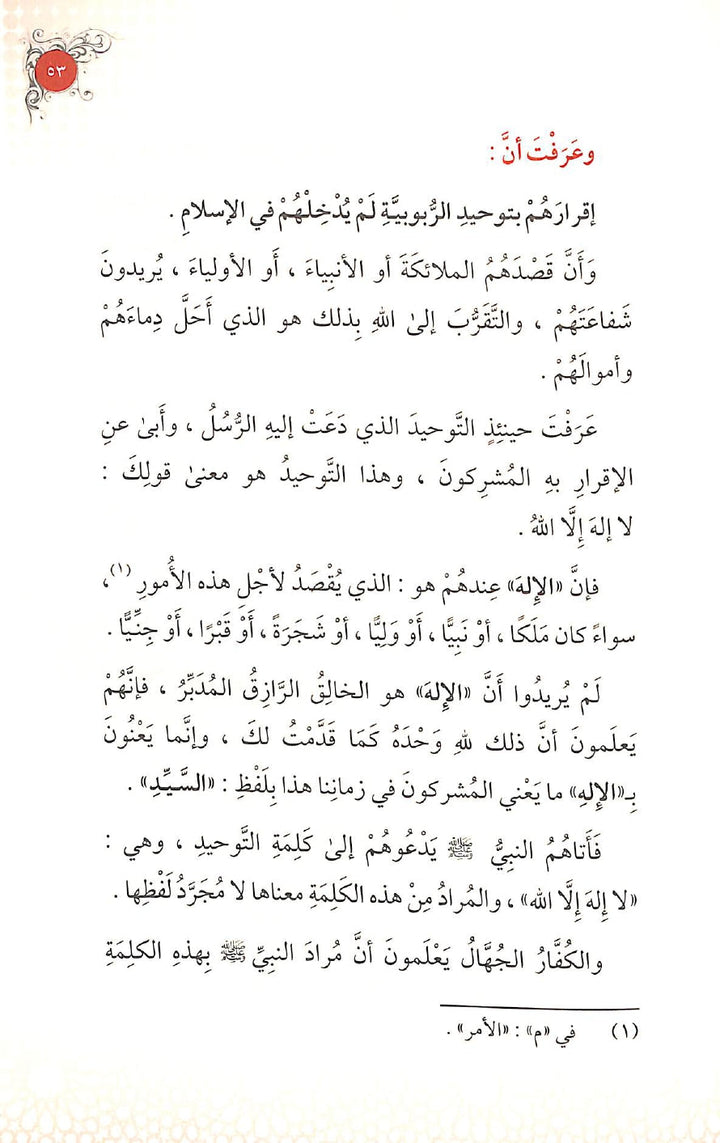 ٥٣
وعَرَفْتَ أنَّ :
إقرارَهُمْ بتوحيدِ الرُّبوبيَّةِ لَمْ يُدْخِلْهُمْ في الإسلامِ .
وَأَنَّ قَصْدَهُمُ الملائكَةَ أو الأنبِياءَ ، أَو الأولياءَ ، يُريدونَ
شَفاعَتَهُمْ ، والتَّقَرُّبَ إلىٰ اللهِ بِذلك هو الذي أَحَلَّ دِماءَهُمْ
وأموالَهُمْ .
عَرَفْتَ حينئِذٍ التَّوحيدَ الذي دَعَتْ إليهِ الرُّسُلُ ، وأَبىٰ عنِ
الإقرارِ بهِ المُشرِكونَ ، وهذا التَّوحيدُ هو معنىٰ قولِكَ :
لا إلهَ إِلَّا اللهُ .
فإنَّ «الإِلهَ» عِندهُمْ هو : الذي يُقْصَدُ لأجْلِ هذه الأُمورِ (١)،
سواءً كان مَلَكًا ، أوْ نَبِيًّا ، أَوْ وَلِيًّا ، أوْ شَجَرَةً ، أَوْ قَبْرًا ، أَوْ جِنِّيًّا .
لَمْ يُريدُوا أَنَّ «الإِلهَ» هو الخالِقُ الرَّازِقُ المُدَبِّرُ ، فإنَّهُمْ
يَعلَمونَ أنَّ ذلك للهِ وَحْدَهُ كَمَا قَدَّمْتُ لكَ ، وإنَّما يَعْنُونَ
بِـ«الإِلهِ» ما يَعْني المُشركونَ في زمانِنا هذا بِلَفْظِ : «السَّيِّدِ» .
فَأَتاهُمُ النبِيُّ ﷺ يَدْعُوهُمْ إلىٰ كَلِمَةِ التَّوحيدِ ، وهي :
«لا إلهَ إِلَّا الله» ، والمُرادُ مِنْ هذه الكَلِمَةِ معناها لا مُجَرَّدُ لَفْظِها .
والكُفَّارُ الجُهَّالُ يَعْلَمونَ أنَّ مُرادَ النبِيِّ ﷺ بِهذهِ الكلِمَةِ
(١) في «م» : «الأمر» .